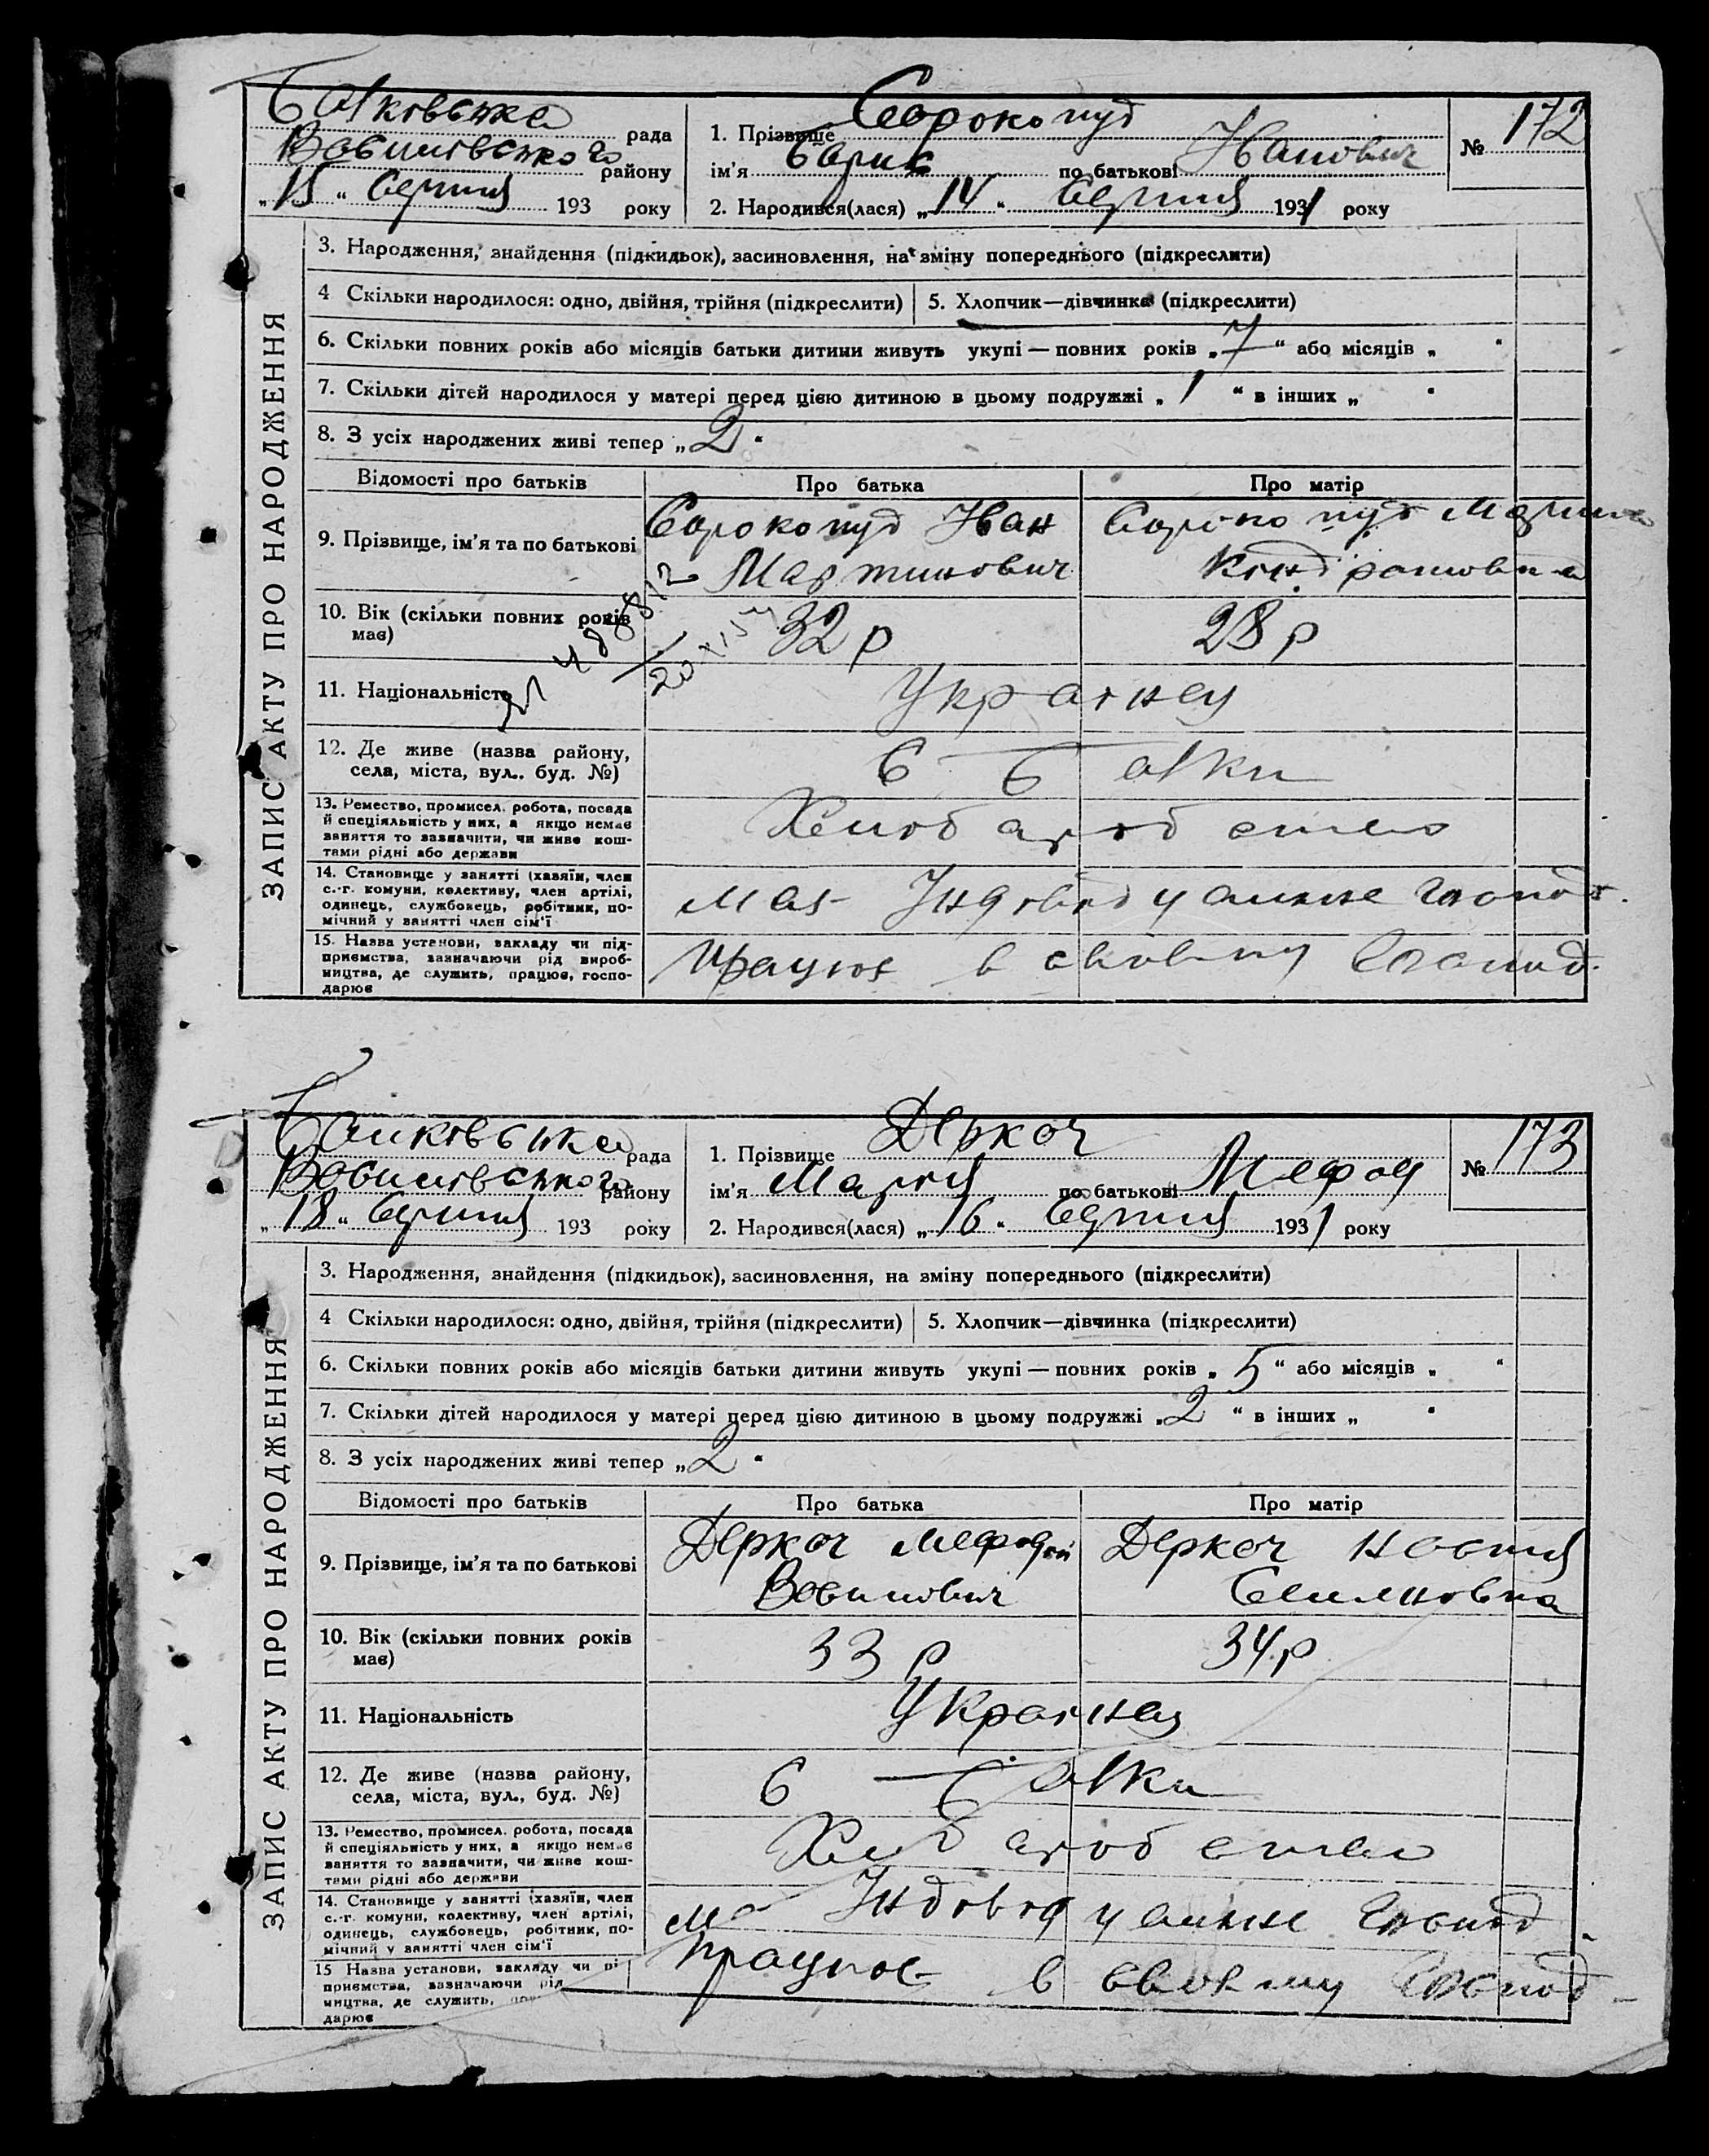 Балківська рада
Василівського району
„ 15 “ Серпня 193 року
1. Прізвище Сорокопуд
ім’я Борис по батькові Іванович
№ 172
2. Народився(лася) „ 14 “ Серпня 1931 року
ЗАПИС АКТУ ПРО НАРОДЖЕННЯ
3. Народження, знайдення (підкидьок), засиновлення, на зміну попереднього (підкреслити)
4 Скільки народилося: одно, двійня, трійня (підкреслити) 5. Хлопчик—дівчинка (підкреслити)
6. Скільки повних років або місяців батьки дитини живуть укупі — повних років „ 7 “ або місяців „ “
7. Скільки дітей народилося у матері перед цією дитиною в цьому подружжі „ 1 “ в інших „ “
8. З усіх народжених живі тепер „ 2 “
Відомості про батьків Про батька Про матір
9. Прізвище, ім’я та по батькові
Сорокопуд Іван
Мартинович
Сорокопуд
10. Вік (скільки повних років
має)
32 р
28 р
11. Національність
12. Де живе (назва району,
села, міста, вул.. буд. №)
С Балки
13. Ремество, промисел. робота, посада
й спеціяльність у них, а якщо немає
заняття то зазначити, чи живе кош-
тами рідні або держави
14. Становище у занятті (хазяїн, член
с.-г. комуни, колективу, член артілі,
одинець, службовець, робітник, по-
мічний у занятті член сім’ї
15. Назва установи, закладу чи під-
приємства, зазначаючи рід вироб-
ництва, де служить, працює, госпо-
дарює
Працює в господ.
Балківська рада
Василівського району
„ 18 “ Серпня 193 року
1. Прізвище Деркач
ім’я Марія по батькові Мефод
№ 173
2. Народився(лася) „ 16 “ Серпня 1931 року
ЗАПИС АКТУ ПРО НАРОДЖЕННЯ
3. Народження, знайдення (підкидьок), засиновлення, на зміну попереднього (підкреслити)
4 Скільки народилося: одно, двійня, трійня (підкреслити) 5. Хлопчик—дівчинка (підкреслити)
6. Скільки повних років або місяців батьки дитини живуть укупі — повних років „ 5 “ або місяців „ “
7. Скільки дітей народилося у матері перед цією дитиною в цьому подружжі „ 2 “ в інших „ “
8. З усіх народжених живі тепер „ 2 “
Відомості про батьків Про батька Про матір
9. Прізвище, ім’я та по батькові
Деркач Мефодій
Деркач
10. Вік (скільки повних років
має)
33 р
34 р
11. Національність
12. Де живе (назва району,
села, міста, вул., буд. №)
С Балки
13. Ремество, промисел. робота, посада
й спеціяльність у них, а якщо немає
заняття то зазначити, чи живе кош-
тами рідні або держави
14. Становище у занятті (хазяїн, член
с.-г. комуни, колективу, член артілі,
одинець, службовець, робітник, по-
мічний у занятті член сім’ї
15 Назва установи, закладу чи пі
приємства, зазначаючи рід
ництва, де служить,
дарює
Працює в господ